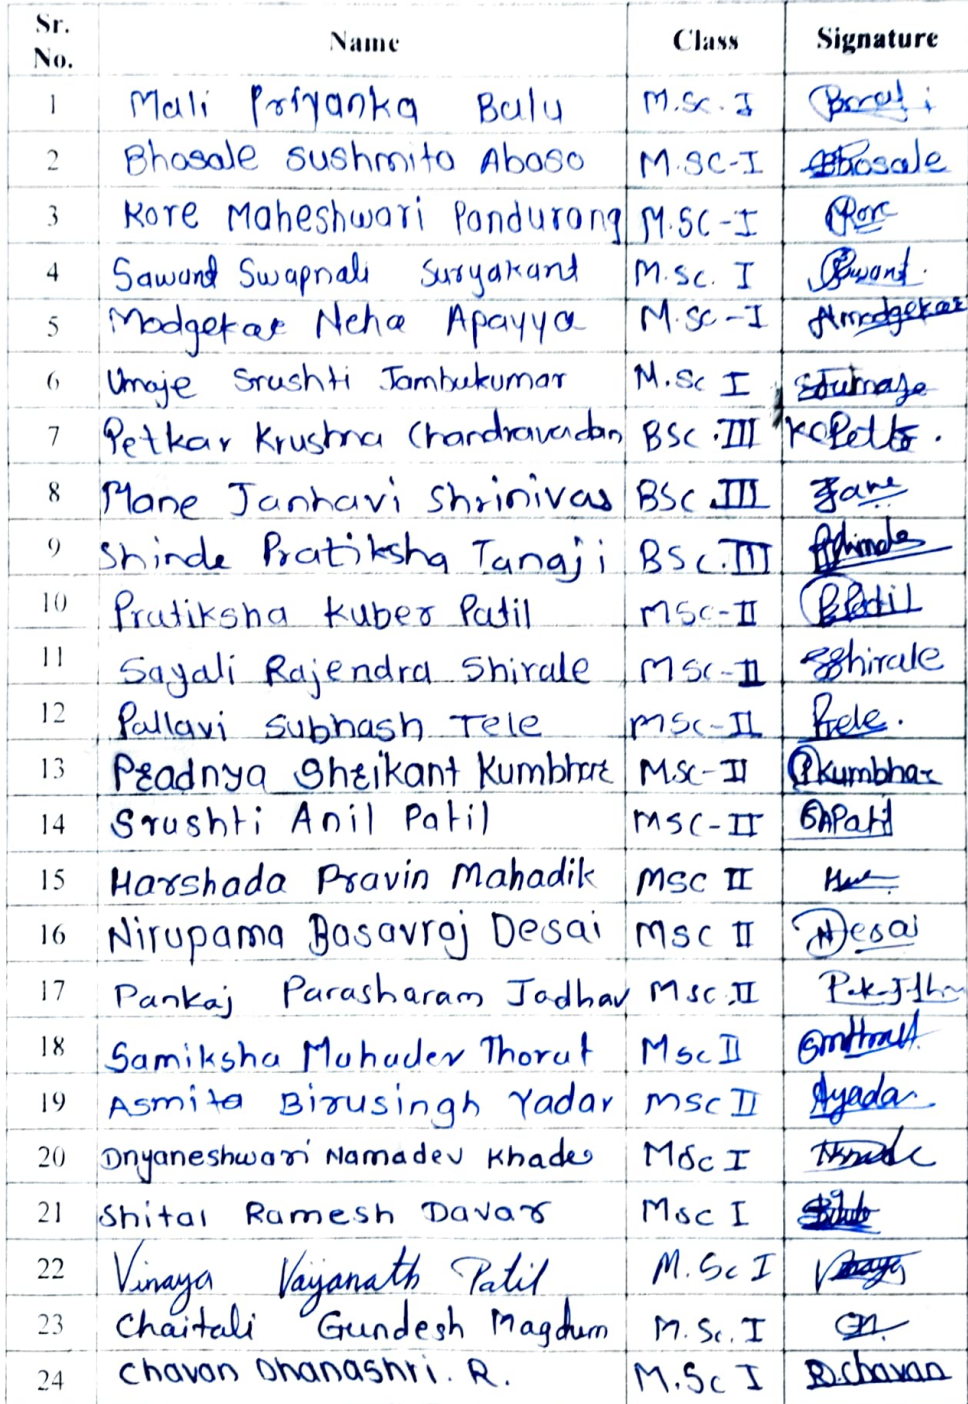 Sr. No. Name Class Signature
1 Mali Priyanka Balu M.Sc. I
2 Bhosale Sushmita Abaso M.SC-I Bhosale
3 Kore Maheshwari Pandurang M.SC-I Kore
4 Sawant Swapnali Suryakant M.Sc. I Sawant.
5 Modgekar Neha Apayya M.Sc-I Amodgekar
6 Umaje Srushti Jambukumar M.Sc I
7 Petkar Krushna Chandravadan BSc.III
8 Mane Janhavi Shrinivas BSc.III Jane
9 Shinde Pratiksha Tanaji BSc.III
10 Pratiksha Kuber Patil MSc-II PPatil
11 Sayali Rajendra Shirale MSc-II Shirale
12 Pallavi Subhash Tele MSc-II Tele.
13 Pradnya Shrikant Kumbhar M.Sc-II Pkumbhar
14 Srushti Anil Patil MSC-II SAPatil
15 Harshada Pravin Mahadik MSC II
16 Nirupama Basavraj Desai MSC II NDesai
17 Pankaj Parasharam Jadhav MSC.II
18 Samiksha Mahadev Thorat MSC II
19 Asmita Birusingh Yadav MSC II Ayadav
20 Dnyaneshwari Namadev Khade MSc I
21 Shital Ramesh Davar MSc I
22 Vinaya Vaijanath Patil M.Sc I
23 Chaitali Gundesh Magdum M.Sc. I
24 Chavan Dhanashri. R. M.Sc I D.chavan